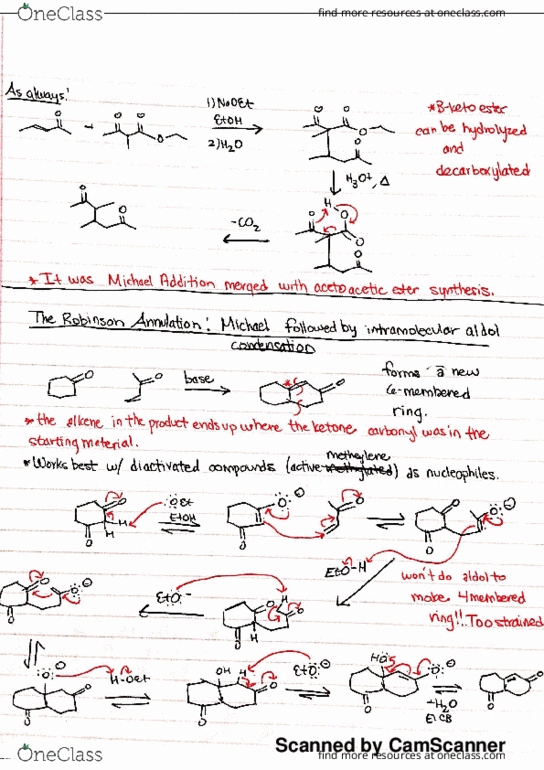 OneClass
find more resources at oneclass.com
As always:
1) NaOEt
EtOH
2) H2O
*B-keto ester
can be hydrolyzed
and
decarboxylated
H3O+, Δ
-CO2
* It was Michael Addition merged with acetoacetic ester synthesis.
The Robinson Annulation: Michael followed by intramolecular aldol
condensation
base
forms a new
6-membered
ring.
* the alkene in the product ends up where the ketone carbonyl was in the
starting material.
methylene
* Works best w/ diactivated compounds (active methylated) as nucleophiles.
OEt
EtOH
EtO-H
won't do aldol to
make 4 membered
ring!! Too strained
EtO
H-OEt
OH
EtO
HO
-H2O
E1CB
Scanned by CamScanner
OneClass
find more resources at oneclass.com